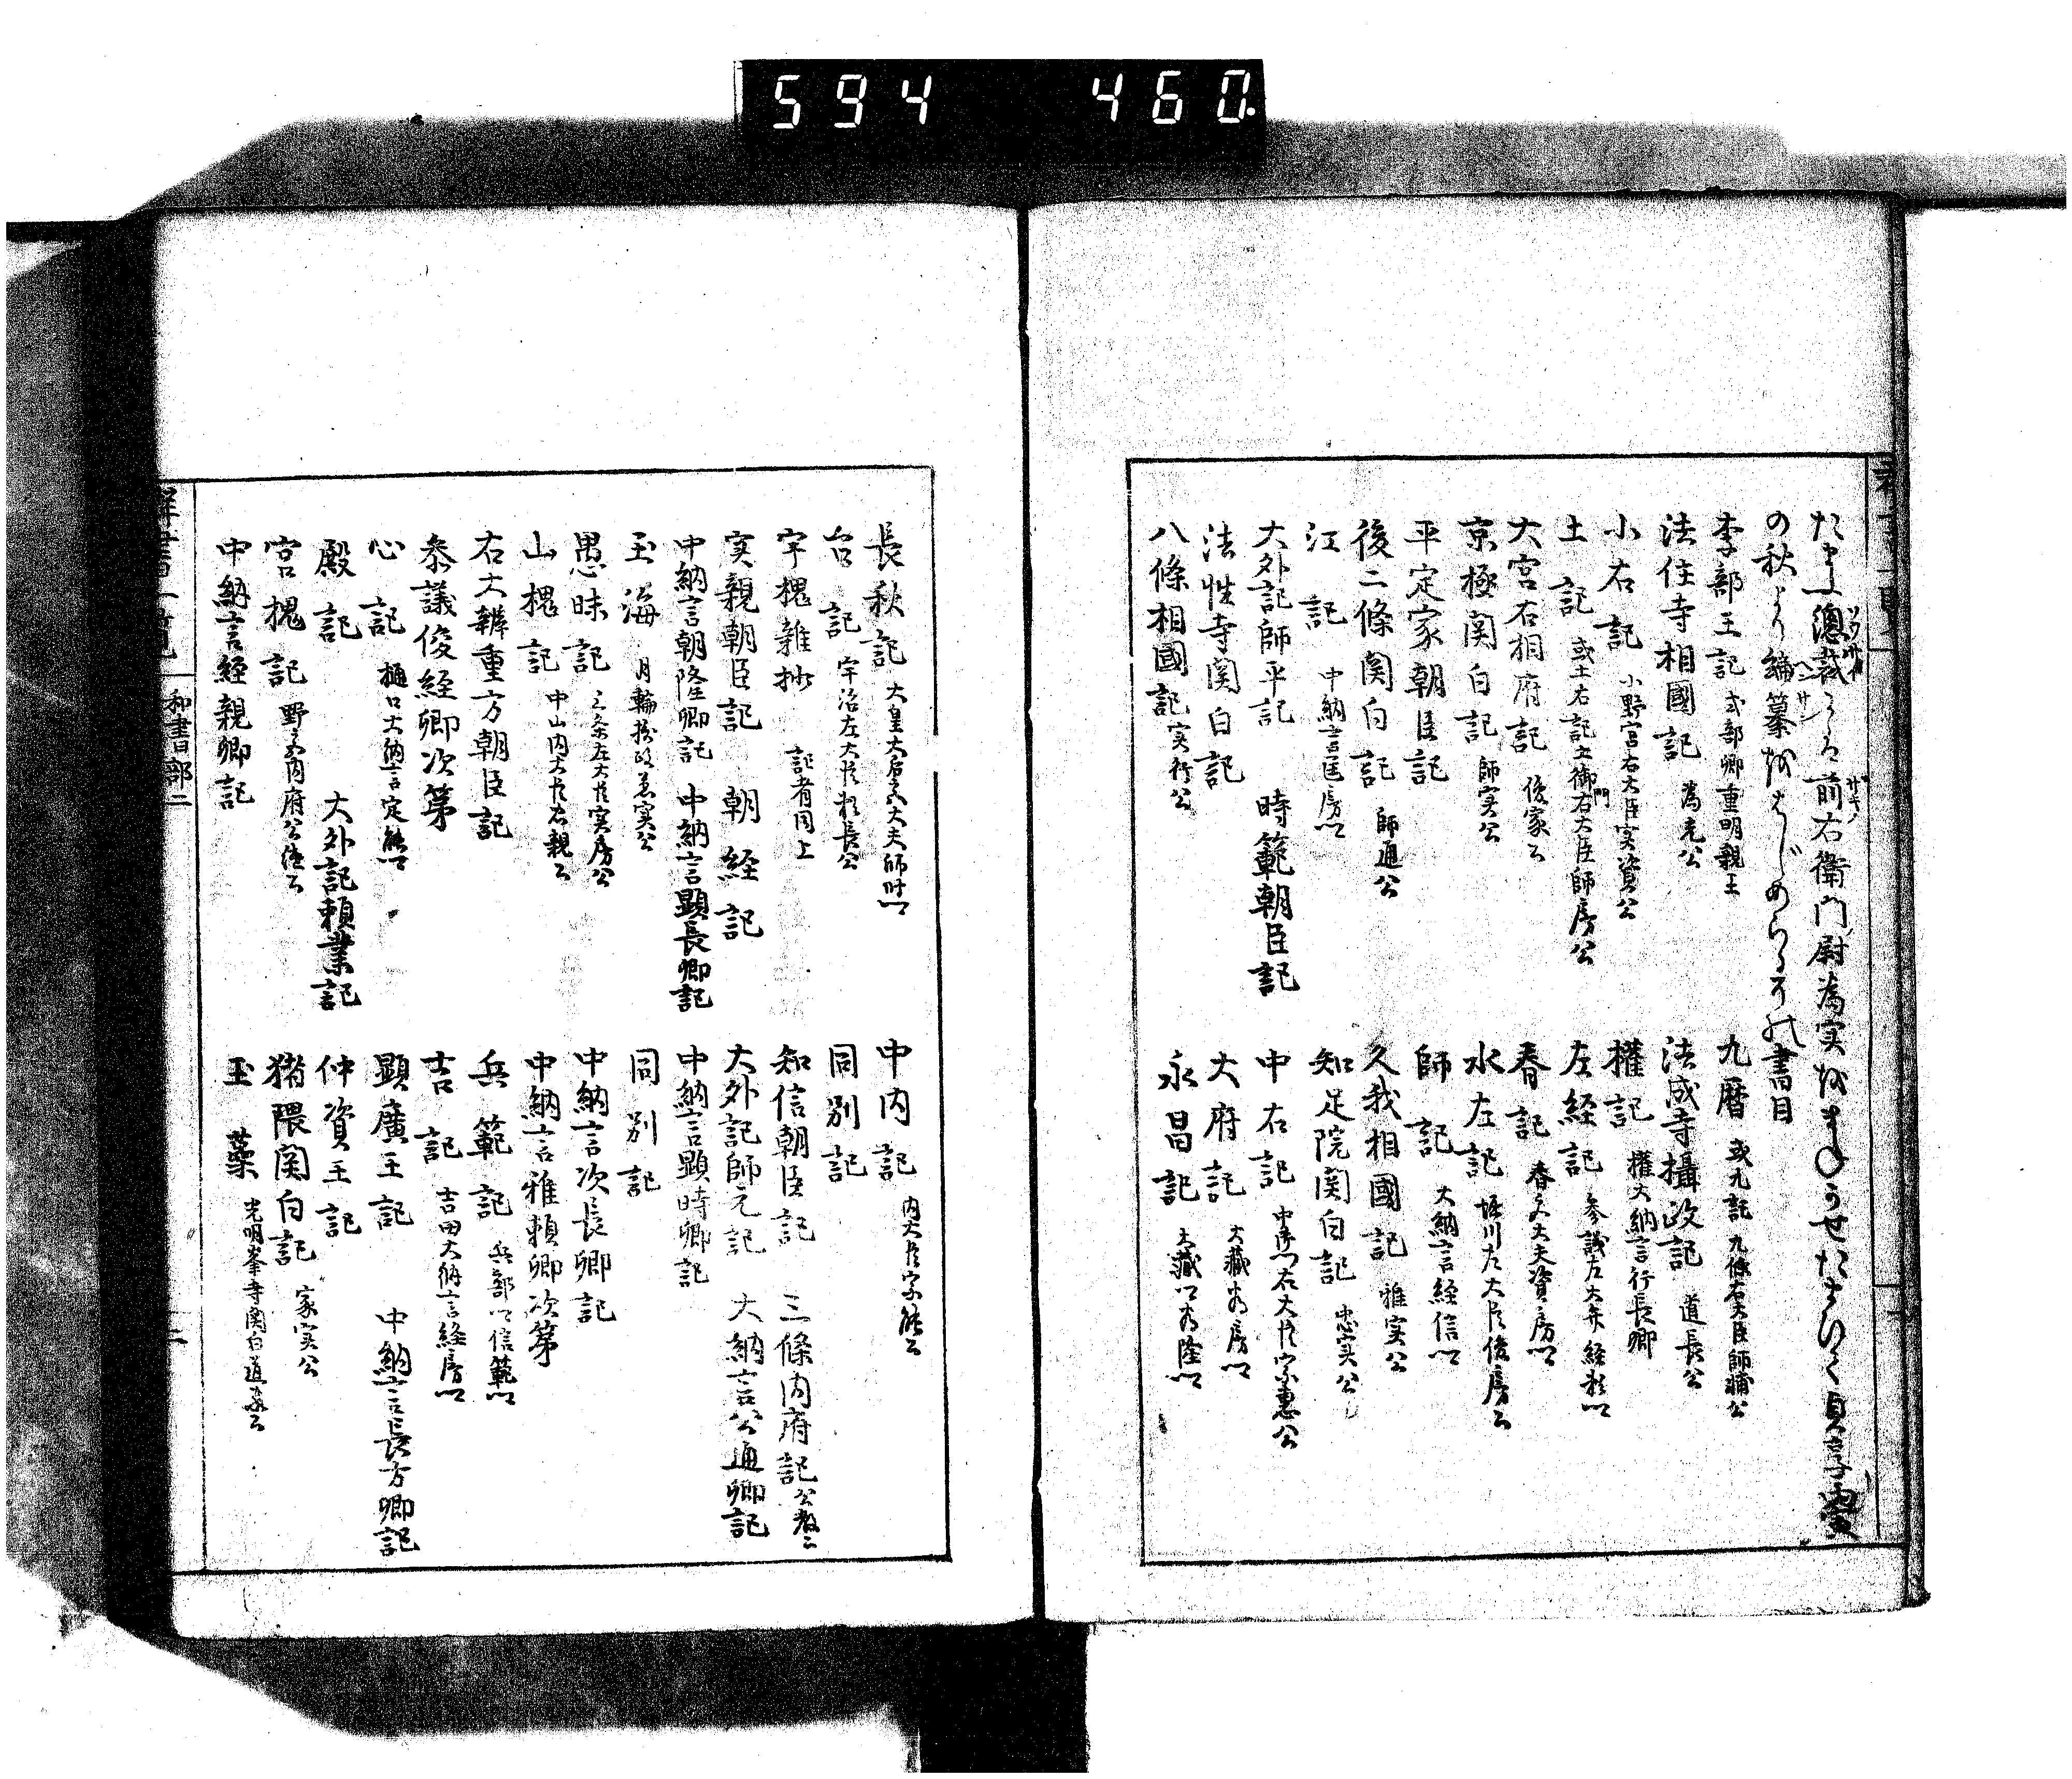 594 460
総裁 前右衛門尉為実
の秋より編纂 書目
李部王記 式部卿重明親王
九暦 或九記 九條右大臣師輔公
法住寺相國記 為光公
法成寺攝政記 道長公
小右記 小野宮右大臣実資公
權記 權大納言行長卿
土記 或土右記土御門右大臣師房公
左経記 参議左大弁経頼
大宮右相府記 俊家公
春記 春宮大夫資房
京極関白記 師実公
水左記 堀川左大臣俊房公
平定家朝臣記
師記 大納言経信
後二條関白記 師通公
久我相國記 雅実公
江記 中納言匡房
知足院関白記 忠実公
大外記師平記 時範朝臣記
中右記 中御門右大臣宗忠公
法性寺関白記
大府記 大藏為房
八條相國記 実行公
永昌記 大藏為隆
長秋記 大皇大后宮大夫師時
中内記 内大臣宗能公
台記 宇治左大臣頼長公
同別記
宇槐雑抄 記者同上
知信朝臣記 三條内府記 公教公
実親朝臣記 朝経記
大外記師元記 大納言公通卿記
中納言朝隆卿記 中納言顕長卿記
中納言顕時卿記
玉海 月輪摂政兼実公
同別記
愚昧記 三条左大臣実房公
中納言次長卿記
山槐記 中山内大臣忠親公
中納言雅頼卿次第
右大辨重方朝臣記
兵範記 兵部信範
参議俊経卿次第
吉記 吉田大納言経房
心記 樋口大納言定能
顕廣王記 中納言長方卿記
殿記 大外記頼業記
仲資王記
宮槐記 野宮内府公継公
猪隈関白記 家実公
中納言経親卿記
玉蘂 光明峯寺関白道家公
和書部二